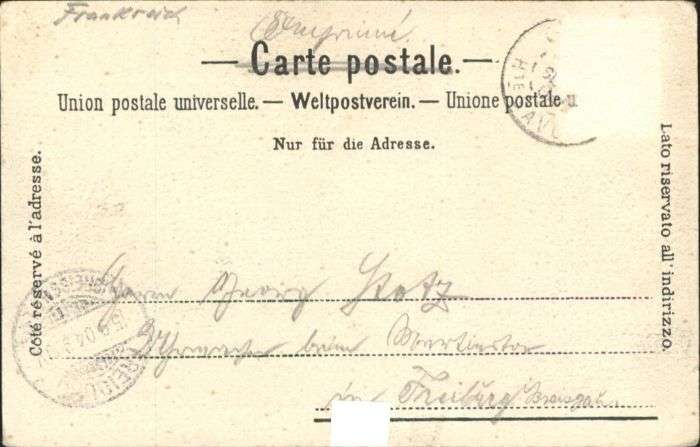 Frankreich
Imprimé
— Carte postale. —
Union postale universelle. — Weltpostverein. — Unione postale u
Nur für die Adresse.
Côté réservé à l'adresse.
Lato riservato all' indirizzo.
Herrn Georg Stotz
Uhrmacher beim Martinstor
in Freiburg Breisgau